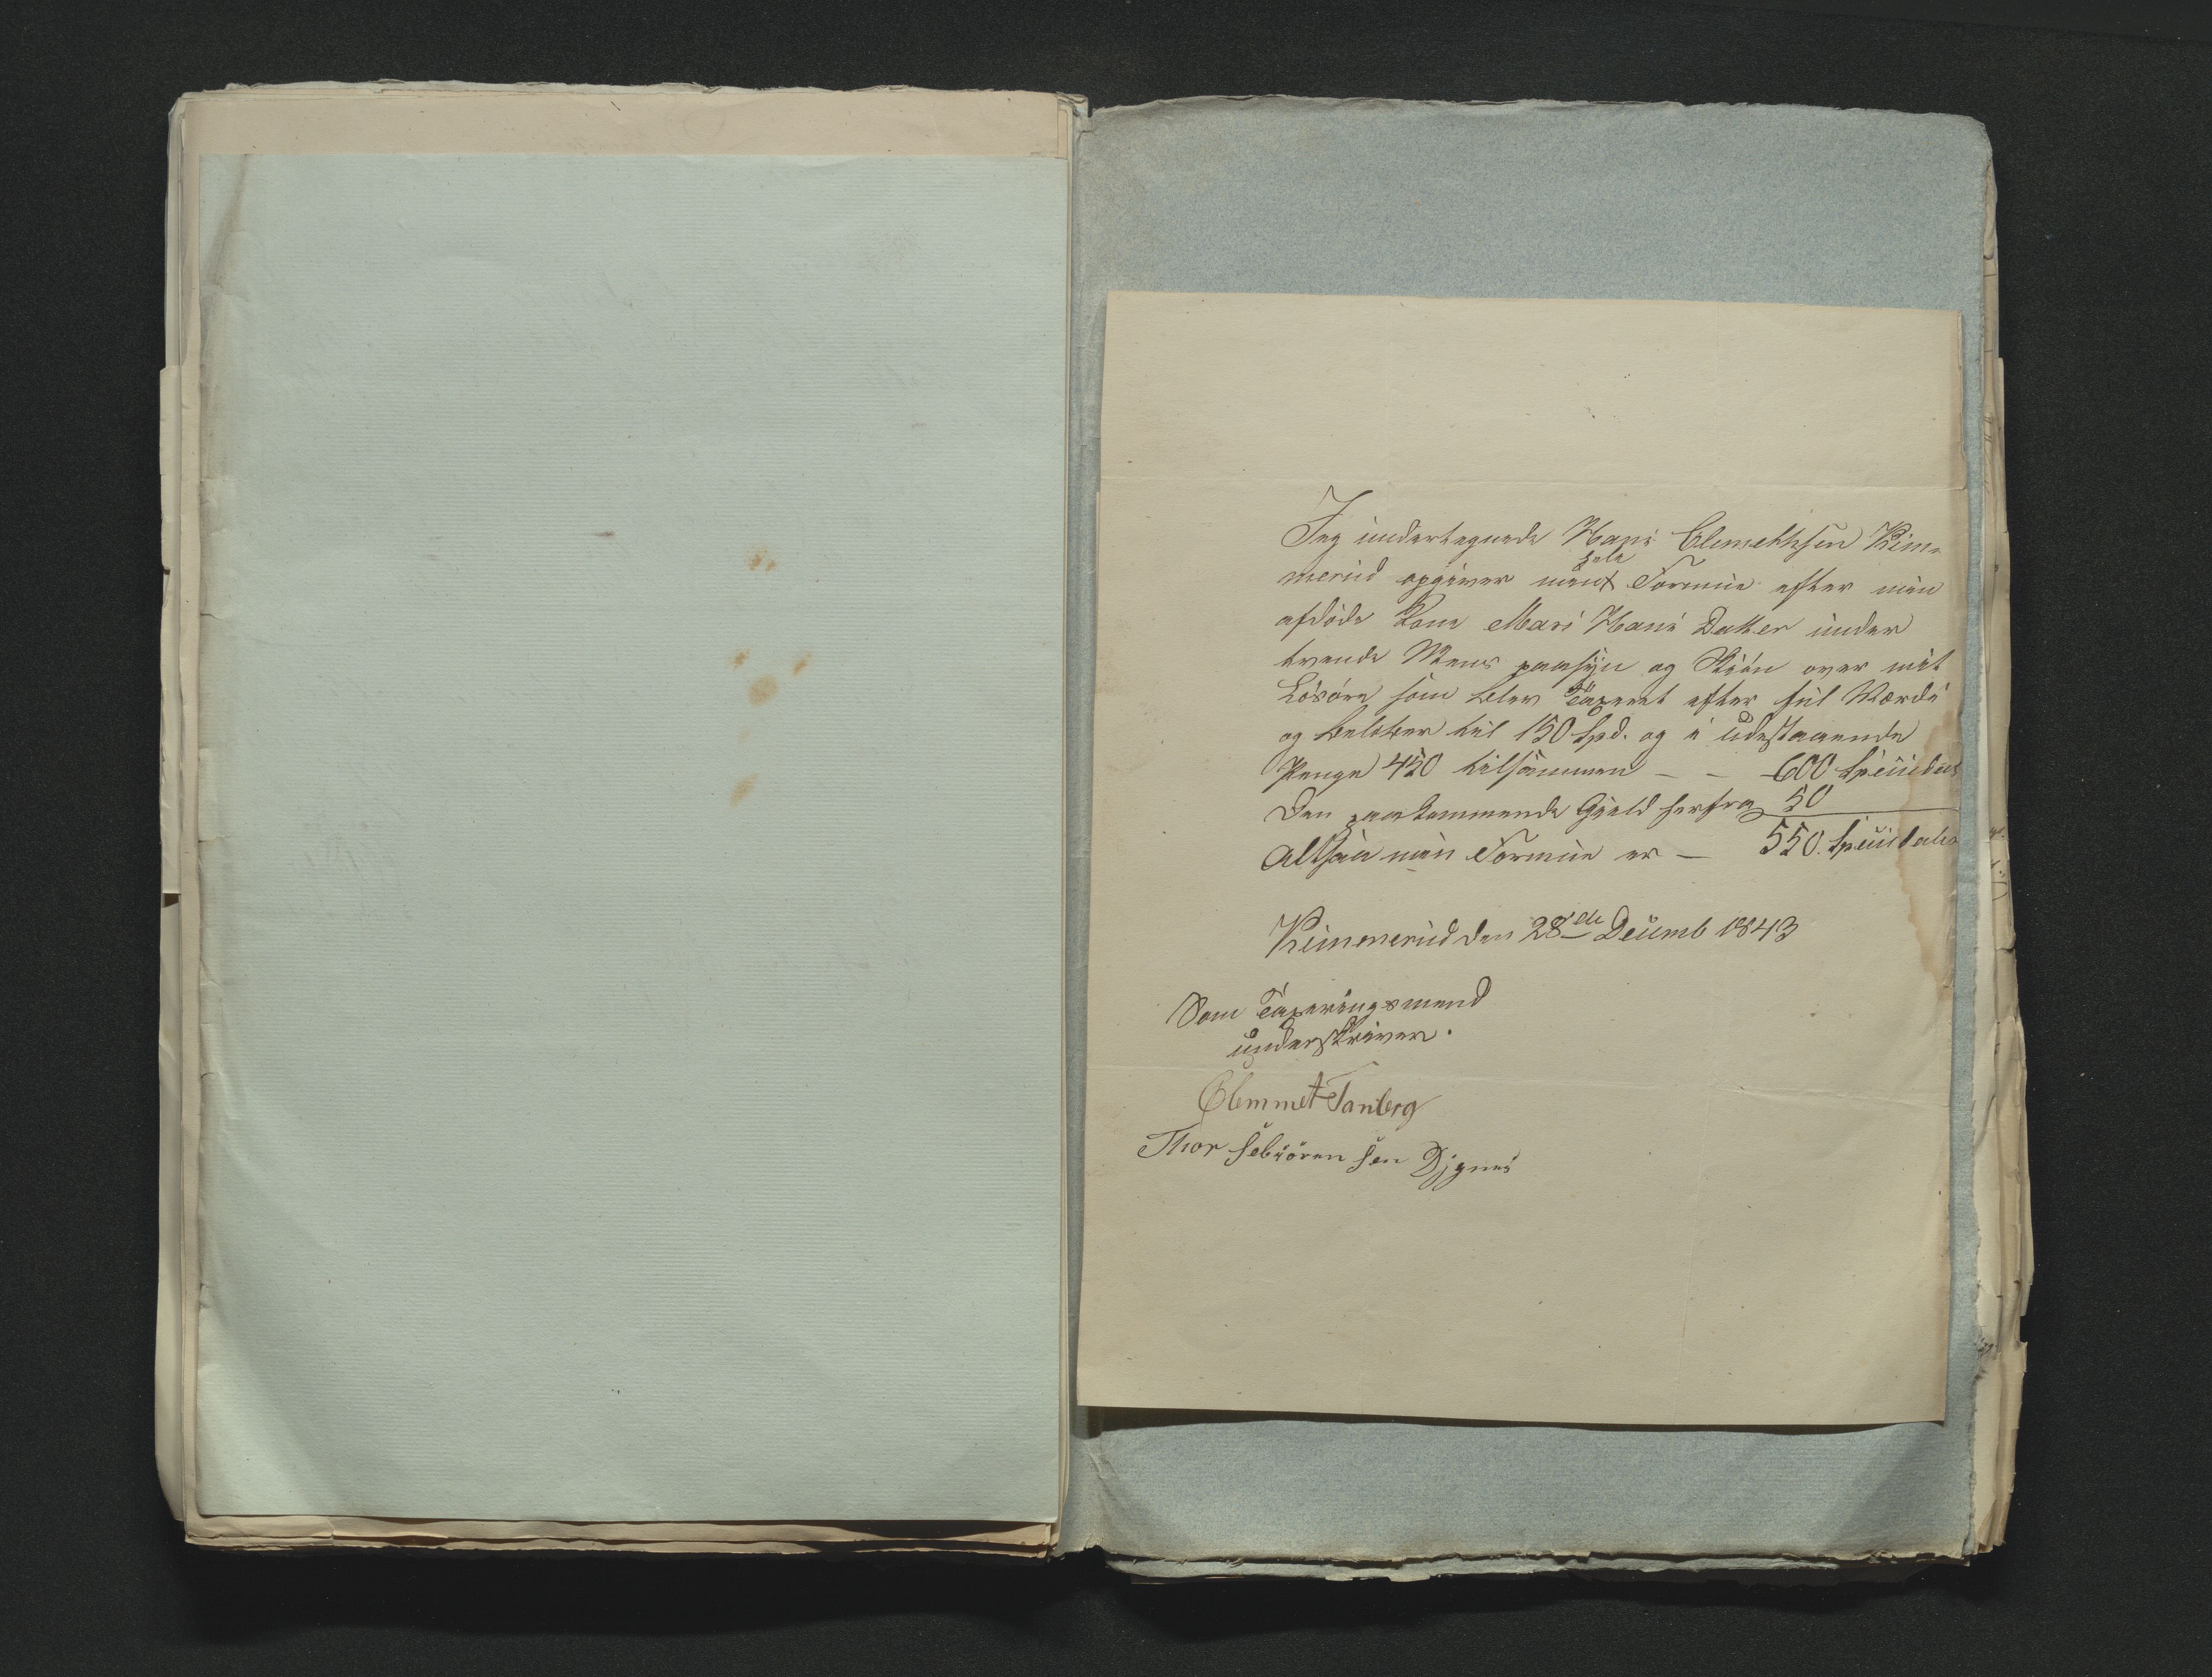 Jeg undertegnede Hans Clemethsen Kim-
merud opgiver mint hele Formue efter min
afdöde Kone Mari Hans Datter under
tvende Mens paasÿn og Skiön over mit
Lösöre som blev Taxeret efter ful Værdi
og belöber til 150 Spd. og i udestaaende
Penge 450 tilsammen – – 600 Speciedal
Den paakommende Gjeld herfra 50
Altsaa min Formue er – 550. Speciedaler
Kimmerud den 28de Decemb 1843
Som Taxeringsmend
underskriver.
Clemmet Tanberg
Thor